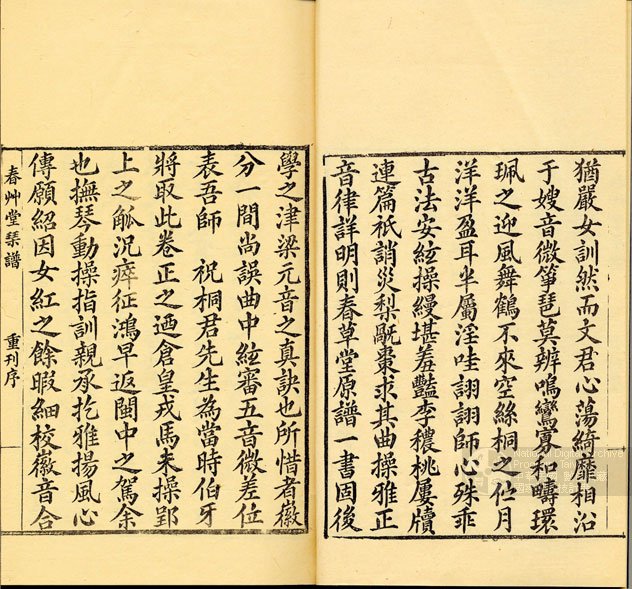 猶嚴女訓然而文君心蕩綺靡相沿
于嫂音微箏琶莫辨鳴鸞寡和疇環
珮之迎風舞鶴不來空絲桐之伫月
洋洋盈耳半屬淫哇詡詡師心殊乖
古法安絃操縵堪羞豔李穠桃屢牘
連篇祇誚災梨戤棗求其曲操雅正
音律詳明則春草堂原譜一書固後
學之津梁元音之真訣也所惜者徽
分一間尚誤曲中絃審五音微差位
表吾師 祝桐君先生為當時伯牙
將取此卷正之迺倉皇戎馬未操郢
上之觚況瘁征鴻早返閩中之駕余
也撫琴動操指訓親承扢雅揚風心
傳願紹因女紅之餘暇細校徽音合
春艸堂琴譜 重刊序
National Digital Archive
Program, Taiwan